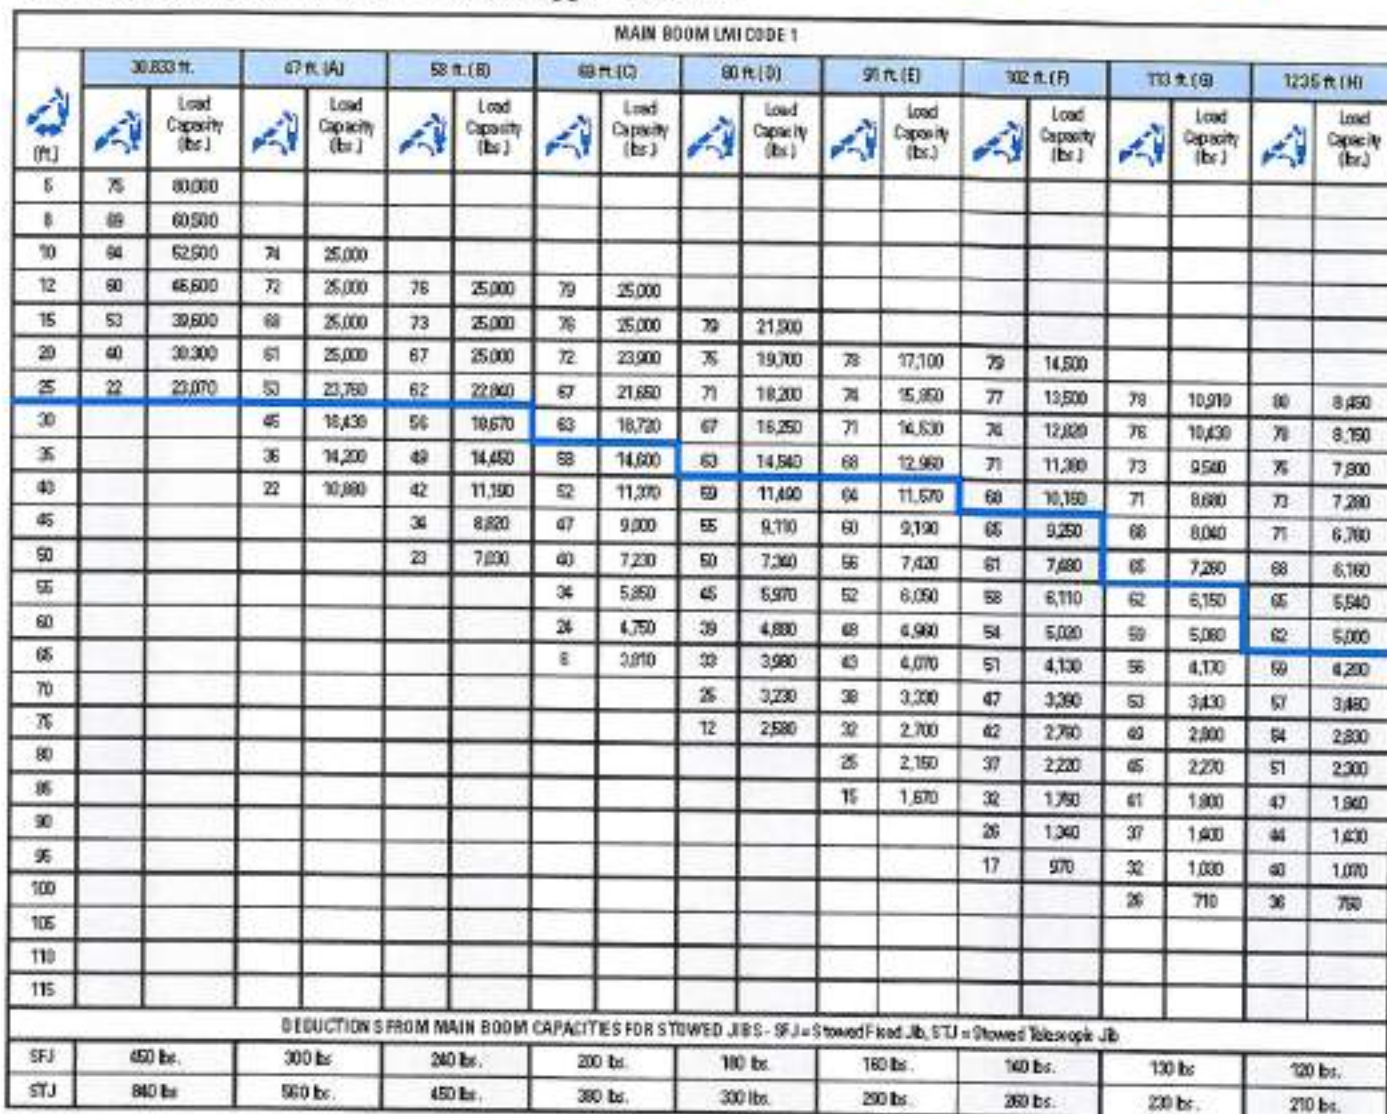 MAIN BOOM LMI CODE 1
30.833 ft. 47 ft. (A) 58 ft. (B) 69 ft. (C) 80 ft. (D) 91 ft. (E) 102 ft. (F) 113 ft. (G) 123.5 ft. (H)
(ft.) Load Capacity (lbs.) Load Capacity (lbs.) Load Capacity (lbs.) Load Capacity (lbs.) Load Capacity (lbs.) Load Capacity (lbs.) Load Capacity (lbs.) Load Capacity (lbs.) Load Capacity (lbs.)
75 80,000
8 69 60,500
10 64 52,500 74 25,000
12 60 46,600 72 25,000 76 25,000 79 25,000
15 53 39,600 68 25,000 73 25,000 76 25,000 79 21,900
20 40 30,300 61 25,000 67 25,000 72 23,900 75 19,700 78 17,100 79 14,500
25 22 23,070 53 23,760 62 22,840 67 21,650 71 18,200 74 15,850 77 13,500 78 10,910 80 8,450
30 45 18,430 56 18,670 63 18,720 67 16,250 71 14,530 74 12,820 76 10,430 78 8,150
35 36 14,200 49 14,450 58 14,600 63 14,540 68 12,960 71 11,380 73 9,540 75 7,800
40 22 10,880 42 11,190 52 11,370 59 11,490 64 11,570 68 10,160 71 8,680 73 7,280
45 34 8,820 47 9,000 55 9,110 60 9,190 65 9,250 68 8,040 71 6,780
50 23 7,030 40 7,230 50 7,340 56 7,420 61 7,480 65 7,260 68 6,160
55 34 5,850 45 5,970 52 6,050 58 6,110 62 6,150 65 5,540
60 24 4,750 39 4,880 48 4,960 54 5,020 59 5,060 62 5,000
65 6 3,810 33 3,980 43 4,070 51 4,130 56 4,170 59 4,200
70 25 3,230 38 3,330 47 3,390 53 3,430 57 3,460
75 12 2,580 32 2,700 42 2,760 49 2,800 54 2,830
80 25 2,150 37 2,220 45 2,270 51 2,300
85 15 1,670 32 1,750 41 1,800 47 1,840
90 26 1,340 37 1,400 44 1,430
95 17 970 32 1,030 40 1,070
100 26 710 36 750
105
110
115
DEDUCTIONS FROM MAIN BOOM CAPACITIES FOR STOWED JIBS - SFJ = Stowed Fixed Jib, STJ = Stowed Telescopic Jib
SFJ 450 lbs. 300 lbs 240 lbs. 200 lbs. 180 lbs. 160 lbs. 140 lbs. 130 lbs 120 lbs.
STJ 840 lbs 560 lbs. 450 lbs. 380 lbs. 300 lbs. 290 lbs. 260 lbs. 230 lbs. 210 lbs.